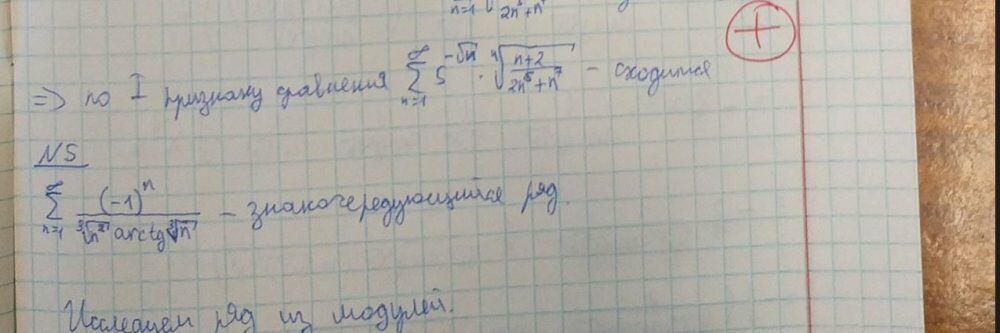 2n⁵+n⁷
+
⇒ по I признаку сравнения ∑ₙ₌₁^∞ 5^(-√n) · ⁴√((n+2)/(2n⁵+n⁷)) – сходится
N5
∑ₙ₌₁^∞ (-1)ⁿ/(³√n² arctg ³√n) – знакочередующийся ряд.
Исследуем ряд из модулей.